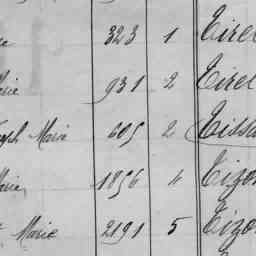 323 1 Tirel
Marie 931 2 Tirel
Joseph Marie 605 2 Tissu
Marie 1856 4 Tizo
Marie 2191 5 Tizo